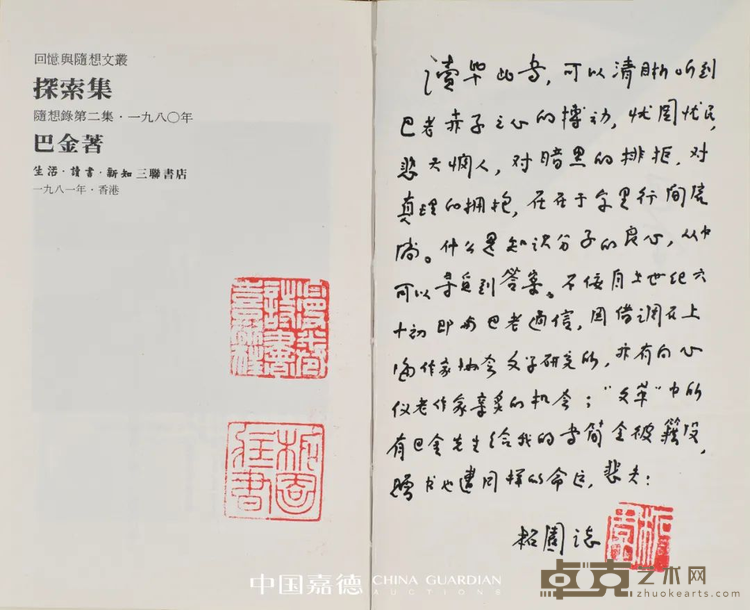 回憶與隨想文叢
探索集
隨想錄第二集·一九八〇年
巴金著
生活·讀書·新知三聯書店
一九八一年·香港
读毕此书，可以清晰听到
巴老赤子之心的搏动，忧国忧民，
悲天悯人，对暗黑的排拒，对
真理的拥抱，在在于字里行间流
淌。什么是知识分子的良心，从中
可以寻觅到答案。不佞自上世纪六
十初即与巴老通信，因借调在上
海作家协会文学研究所，亦有向心
仪老作家亲炙的机会；“文革”中所
有巴金先生给我的书简全被籍没，
赠书也遭同样的命运，悲夫！
柘園誌
中国嘉德 CHINA GUARDIAN
AUCTIONS
卓克艺术网
zhuokearts.com